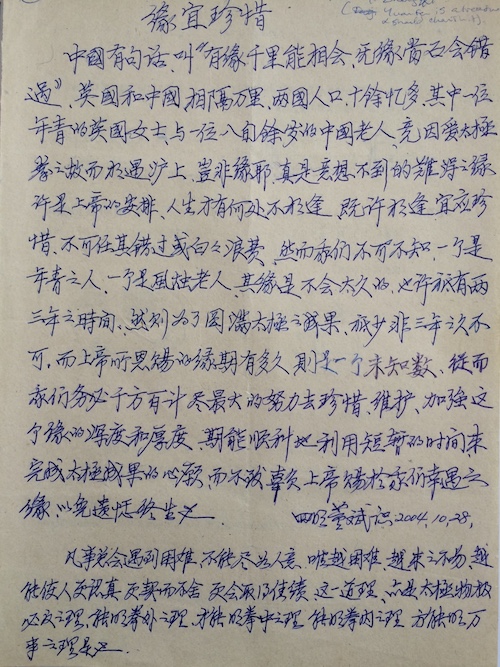 緣宜珍惜
中國有句话,叫"有缘千里能相会,无缘当面会错
過",英國和中國,相隔万里,两國人口,十餘忆多,其中一位
年青的英國女士,与一位八旬餘岁的中國老人,竟因爱太极
拳之故而相遇沪上,岂非缘耶,真是意想不到的難得之缘
许是上帝的安排,人生才有何处不相逢,既许相逢,宜应珍
惜,不可任其错过或白々浪费,然而我们不可不知,一个是
年青之人,一个是風烛老人,其缘是不会太久的,也许祇有两
三年之時间,然则为了圆满太极之成果,祇少非三年之久不
可,而上帝所恩赐的缘期有多久,則是一个未知数,從而
我们务必千方百计,尽最大的努力去珍惜,维护,加强这
个缘的深度和厚度,期能顺利地利用短暂的時间来
完成太极成果的心愿,而不致辜负上帝赐於我们幸遇之
缘,以免遺恨终生也。 四明董斌识 2004,10,28,
凡事总会遇到困难,不能尽如人意,唯越困难,越来之不易,越
能使人更认真,更契而不舍,更会取得佳绩,这一道理,亦是太极物极
必反之理,能明拳外之理,才能明拳中之理,能明拳内之理,方能明万
事之理是也。